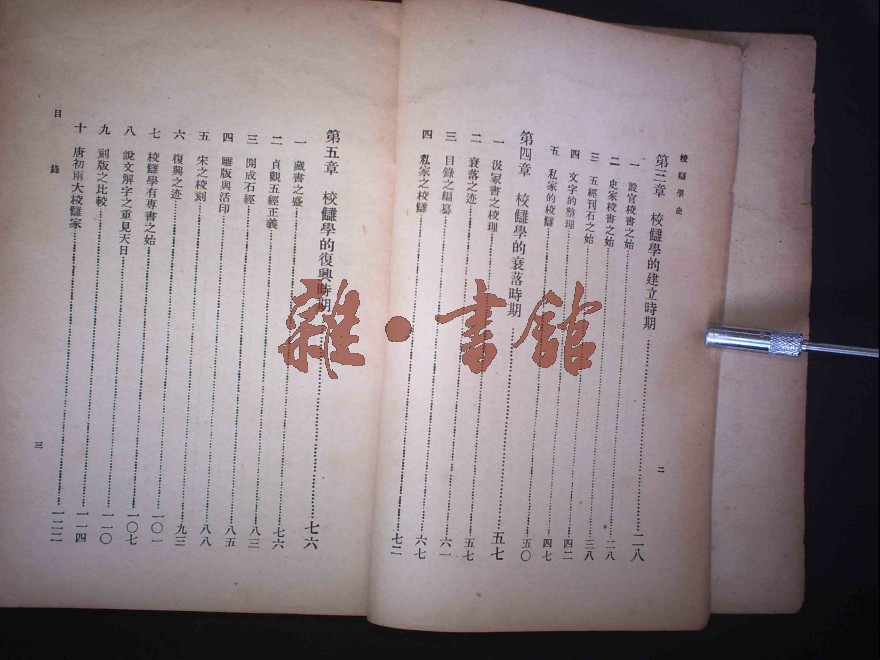 校讎學史
第三章 校讎學的建立時期……二八
一 設官校書之始……二八
二 史家校書之始……三八
三 五經刊石之始……四二
四 文字的整理……四七
五 私家的校讎……五〇
第四章 校讎學的衰落時期……五七
一 汲冢書之校理……五七
二 衰落之迹……六一
三 目錄之編纂……六七
四 私家之校讎……七二
二
第五章 校讎學的復興時期……七六
一 藏書之盛……七六
二 貞觀五經正義……八三
三 開成石經……八五
四 雕版與活印……八八
五 宋之校刻……九三
六 復興之迹……一〇一
七 校讎學有專書之始……一〇七
八 說文解字之重見天日……一一〇
九 刻版之比較……一一四
十 唐初兩大校讎家……一二二
目錄
三
雜·書館